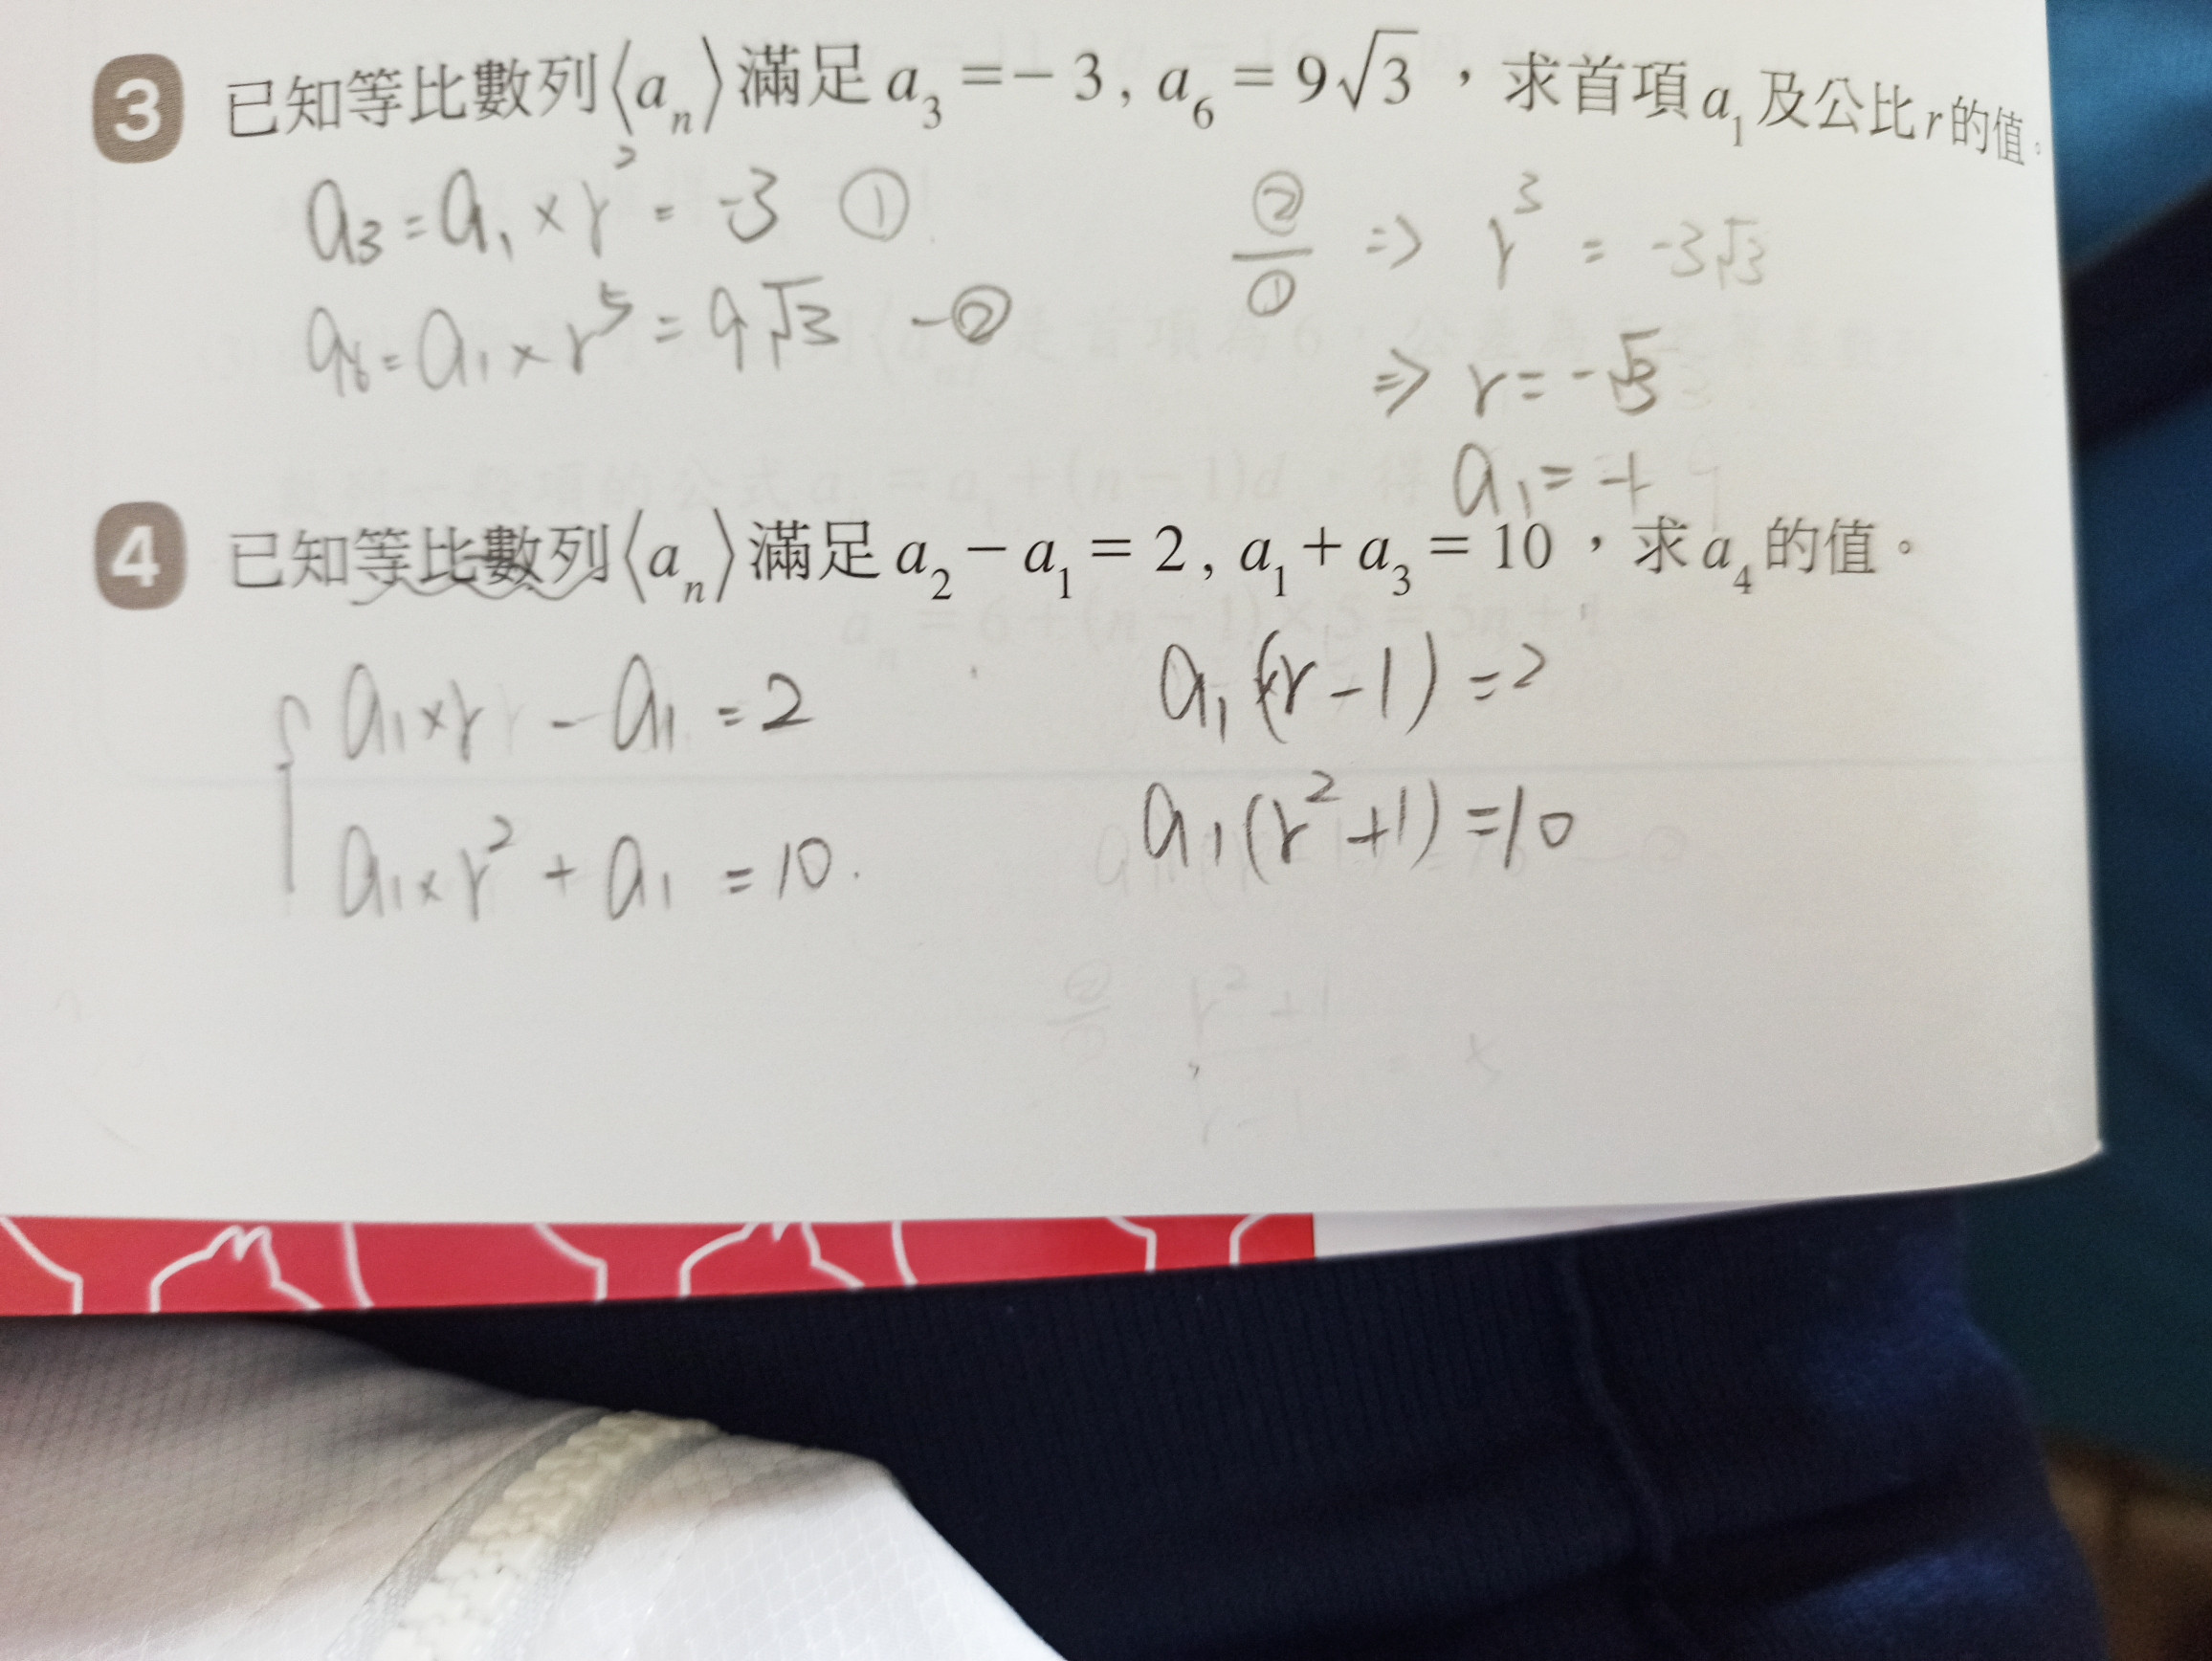 3 已知等比數列⟨aₙ⟩滿足 a₃ =− 3, a₆ = 9√3 ，求首項 a₁ 及公比 r 的值。
a₃ = a₁ × r² = -3 ①
a₆ = a₁ × r⁵ = 9√3 -②
②/① => r³ = -3√3
=> r = -√3
a₁ = -1
4 已知等比數列⟨aₙ⟩滿足 a₂ − a₁ = 2, a₁ + a₃ = 10 ，求 a₄ 的值。
a₁×r - a₁ = 2
a₁×r² + a₁ = 10.
a₁(r-1) = 2
a₁(r²+1) = 10